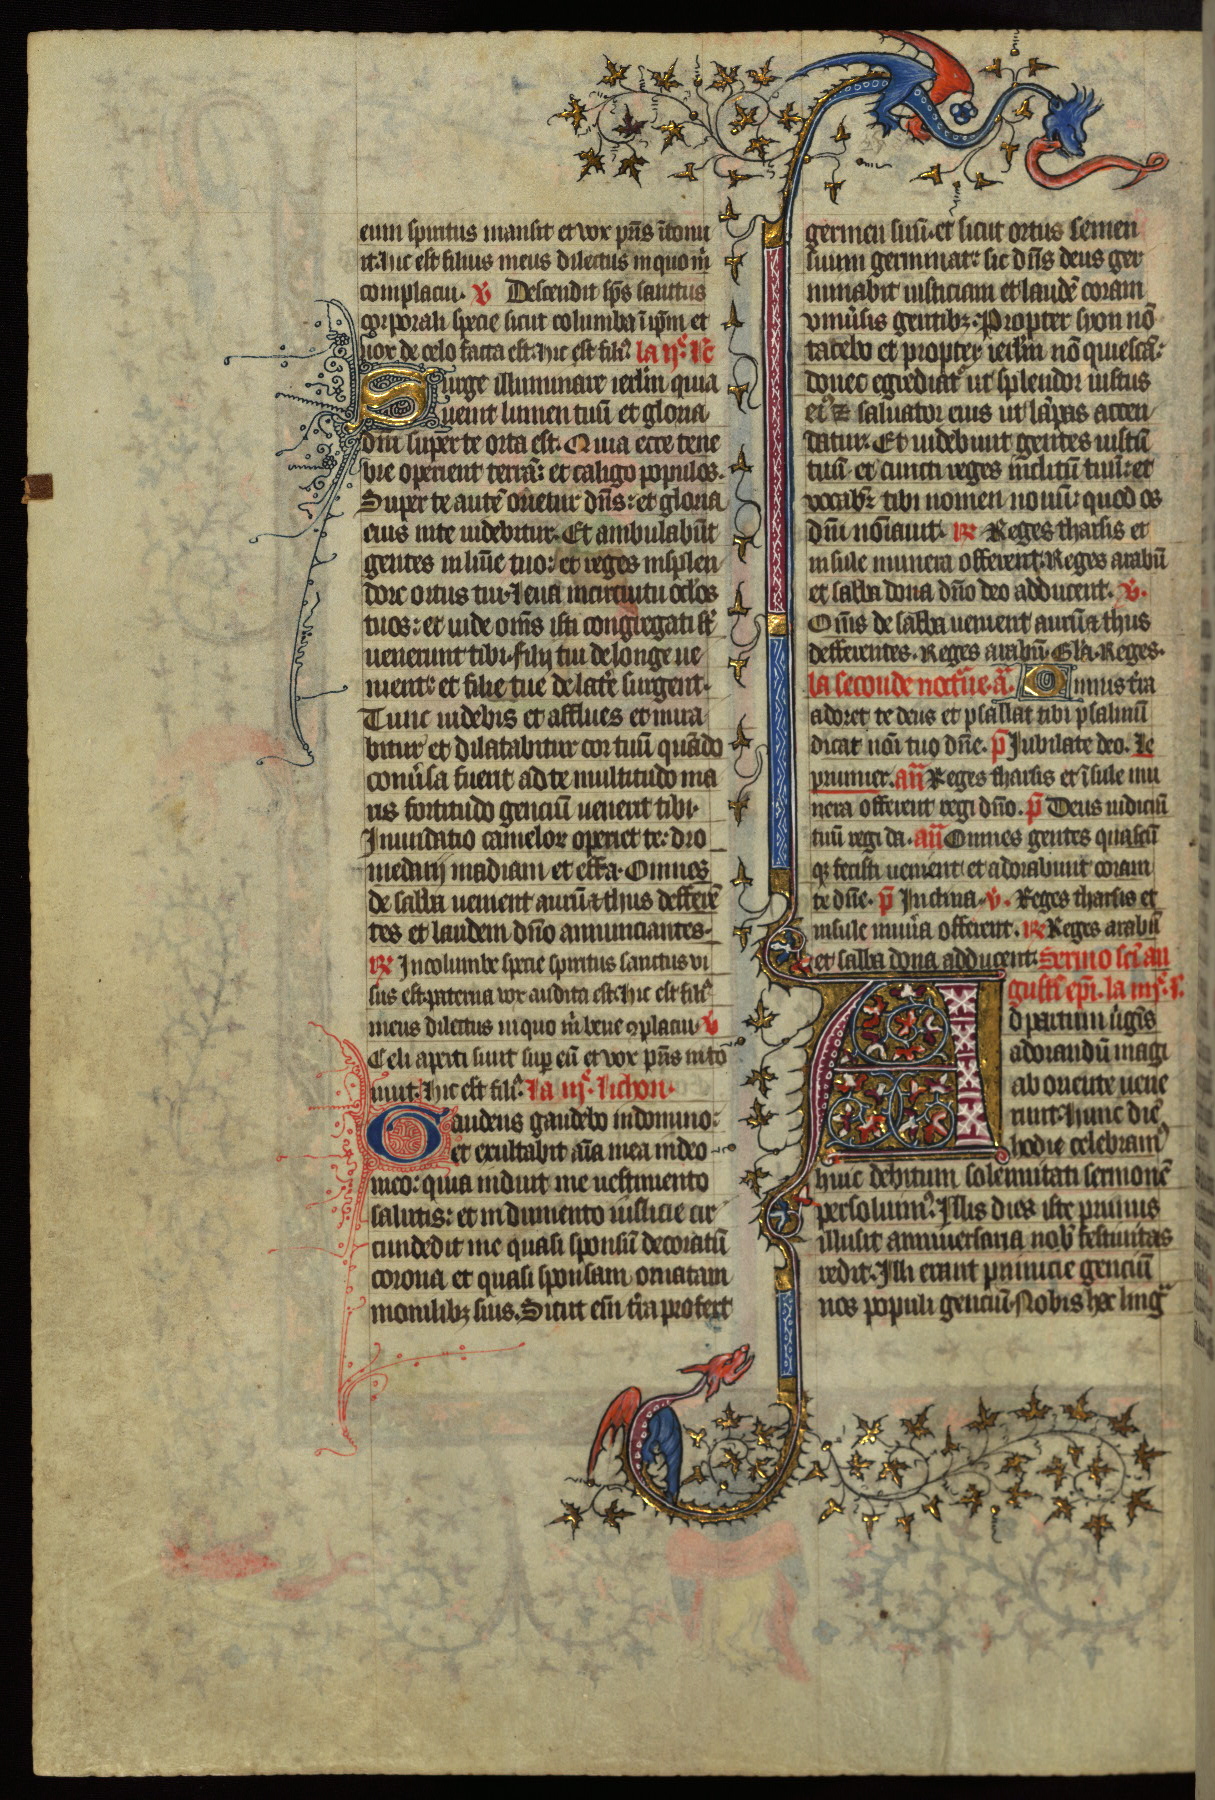 eum spiritus mansit et vox pr̄is ītonu
it: hic est filius meus dilectus in quo m̄
complacui. v̄ Descendit sp̄s sanctus
corporali specie sicut columba ī ip̄m et
uox de celo facta est: hic est fili⁹ la ijᵉ lc̄
Surge illuminare ierl̄m quia
uenit lumen tuū et gloria
dn̄i super te orta est. Quia ecce tene
bre operient terrā: et caligo populos.
Super te autē orietur dn̄s: et gloria
eius in te uidebitur. Et ambulabūt
gentes in lūīe tuo: et reges in splen
dore ortus tui. Leua in circuitu oc̄los
tuos: et uide om̄s isti congregati st̄
uenerunt tibi. filij tui de longe ue
nient: et filie tue de lat̄e surgent.
Tunc uidebis et afflues et mira
bitur et dilatabitur cor tuū quādo
conuīsa fuerit ad te multitudo ma
ris fortitudo genciū uenerit tibi.
Inundatio camelor operiet te: dro
medarij madian et effa. Omnes
de saba uenient aurū & thus defferē
tes et laudem dn̄o annunciantes.
R̄ In columbe specie spiritus sanctus vi
sus est: paterna vox audita est: hic est fili⁹
meus dilectus in quo m̄ bene ꝯplacui. v̄
Celi aperti sunt sup eū et vox pr̄is īntō
nuit. hic est fili⁹. La iijᵉ. lichon.
Gaudens gaudebo in domino:
et exultabit aīa mea in deo
meo: quia induit me uestimento
salutis: et indumento iusticie cir
cundedit me quasi sponsū decoratū
corona et quasi sponsam ornatam
monilibꝫ suis. Sicut em̄ t̄ra profert
germen suū. et sicut ortus semen
suum germinat: sic dn̄s deus ger
minabit iusticiam et laudē coram
vniūsis gentibꝫ. Propter syon nō
tacebo et propter ierl̄m nō quiescā:
donec egrediat᷑ ut splendor iustus
ei⁹ & saluator eius ut lāpas accen
datur. Et uidebunt gentes iustū
tuū et cuncti reges īnclitū tuū: et
vocabit᷑ tibi nomen nouū: quod os
dn̄i noīauit. R̄ Reges tharsis et
insule munera offerent: Reges arabū
et saba dona dn̄o deo adducent. v̄.
Om̄s de saba uenient aurū & thus
defferentes. Reges arabū. Gl̄a. Reges.
la seconde noct̄ne. ā. Omnis t̄ra
adoret te deus et psallat tibi psalmū
dicat noī tuo dn̄e. p̄ Jubilate deo. Le
prumier. añ Reges tharsis et īsule mu
nera offerent regi dn̄o. p̄ Deus iudiciū
tuū regi da. añ Omnes gentes quascū
qꝫ fecisti uenient et adorabunt coram
te dn̄e. p̄ Inclina. v̄. Reges tharsis et
insule mun̄a offerent. R̄ Reges arabū
et saba dona adducent. Sermo scī au
gustī ep̄i. la iiijᵉ. l̄.
Ad partum ūgīs
adorandū magi
ab oriente uene
runt. hunc diē
hodie celebram⁹
huic debitum solennitati sermonē
persoluim⁹. Illis dies iste primus
illuxit anniuersaria nob᷑ festiuitas
redit. Illi erant primicie genciū
nos populi genciū. Nobis hec ling᷑